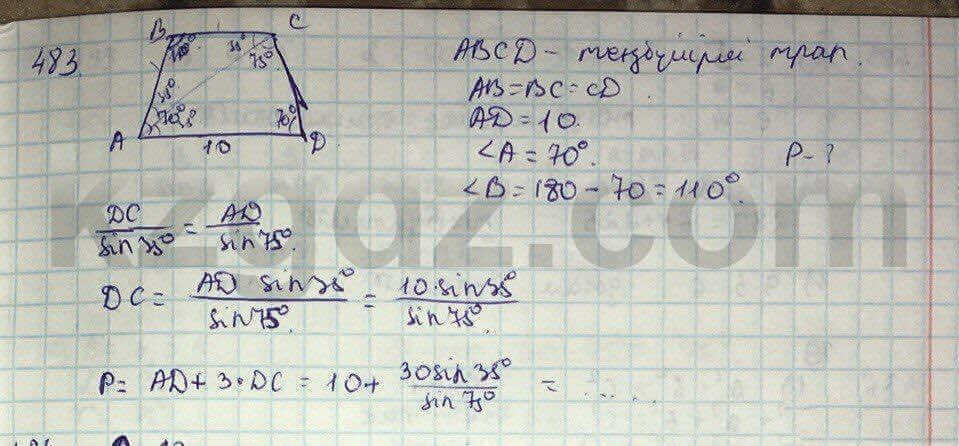 483.
B C
110° 35° 75°
35°
70° 70°
A 10 D
ABCD – теңбүйірлі трап.
AB=BC=CD.
AD=10.
∠A=70°. P-?
∠B=180-70=110°.
DC/sin35° = AD/sin75°.
DC= AD sin35°/sin75° = 10·sin35°/sin75°.
P= AD+3·DC=10+ 30sin35°/sin75° = ......
kzgdz.com